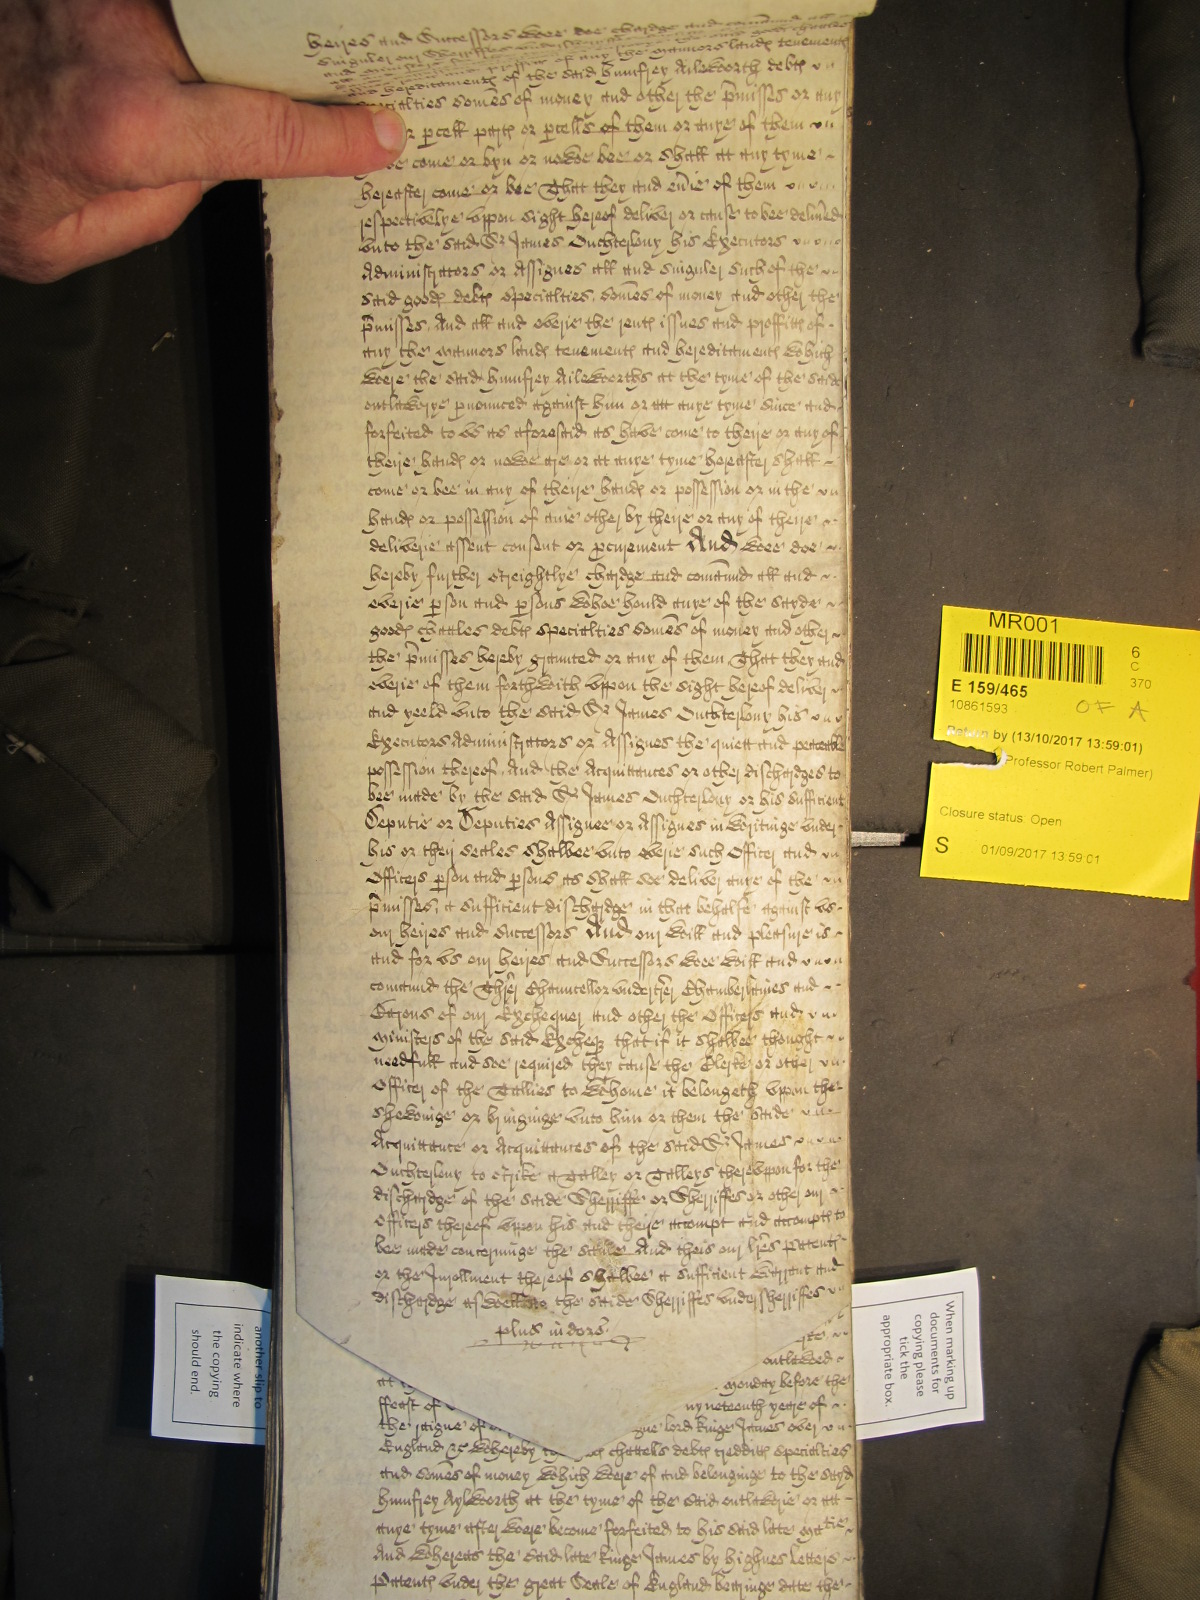 heires and Successors wee doe chardge and comãnd all
singuler our Sheriffes
any the mannors landꝭ tenementꝭ
and hereditamentꝭ of the said Humfrey Aileworth debtꝭ
specialties somẽs of money and other the p̃misses or any
p̱cell p̱tꝭ or p̱cells of them or anye of them
come or byn or nowe bee or shall at any tyme
hereafter come or bee That they and eũie of them
respectivelye vppon sight hereof deliver or cause to bee deliũed
vnto the said Sr James Ouchterlony his Executors
Administrators or Assignes all and singuler such of the
said goodꝭ debtꝭ specialties, somẽs of money and other the
p̃misses, And all and everie the rentꝭ issues and proffittꝭ of
any the mannors landꝭ tenementꝭ and hereditamentꝭ which
were the said Humfrey Aileworths at the tyme of the saide
outlawrye p̱nounced against him or att anye tyme since and
forfeited to vs as aforesaid as have come to theire or any of
theire handꝭ or nowe are or at anye tyme hereafter shall
come or bee in any of theire handꝭ or possession or in the
handꝭ or possession of anie other by theire or any of theire
deliverie assent consent or p̱curement And wee doe
hereby further streightlye chardge and comãnd all and
everie p̱son and p̱sons whoe hould anye of the sayde
goodꝭ chattles debtꝭ specialties somẽs of money and other
the p̃misses hereby graunted or any of them That they and
everie of them forthwith vppon the sight hereof deliver
and yeeld vnto the said Sr James Ouchterlony his
Executors Administrators or Assignes the quiett and peaceable
possession thereof, And the Acquittances or other dischardges to
bee made by the said Sr James Ouchterlony or his sufficient
Deputie or Deputies Assignee or Assignes in writinge vnder
his or their seales shalbee vnto everie such Officer and
Officers p̱son and p̱sons as shall soe deliver anye of the
p̃misses, a sufficient dischardge in that behalfe against vs
our heires and successors And our will and pleasure is
and for vs our heires and Successors wee will and
comaund the Thr̃er Chauncellor vndertr̃er Chamberlaines and
Barons of our Exchequer and other the Officers and
ministers of the said Excheqꝫ that if it shalbee thought
needfull and soe required they cause the Clerke or other
Officer of the Tallies to whome it belongeth vppon the
shewinge or bringinge vnto him or them the saide
Acquittance or Acquittances of the said Sr James
Ouchterlony to strike a Talley or Talleys therevppon for the
dischardge of the saide Sherriffe or Sherriffes or other our
Officers thereof vppon his and theire accompt and accomptꝭ to
bee made concerninge the same And theis our l̃res Patentꝭ
or the Inrollment thereof shalbee a sufficient warrant and
dischardge aswell to the saide Sherriffes vndersherriffes
plus in dors̃
outlawed
monday before the
feast of nyneteenth yeare of
the raigne of lord kinge James over
England &c Whereby chattels debtꝭ credditꝭ specialties
and somẽs of money which were of and belonginge to the sayd
Humfrey Aylworth at the tyme of the said outlawrie or att
anye tyme after were become forfeited to his said late Matie
And whereas the said late kinge James by highnes Letters
Patentꝭ vnder the great Seale of England bearinge date the
MR001
6
C
370
E 159/465
10861593
OF A
Return by (13/10/2017 13:59:01)
Professor Robert Palmer)
Closure status: Open
S 01/09/2017 13:59:01
another slip to
indicate where
the copying
should end.
When marking up
documents for
copying please
tick the
appropriate box.